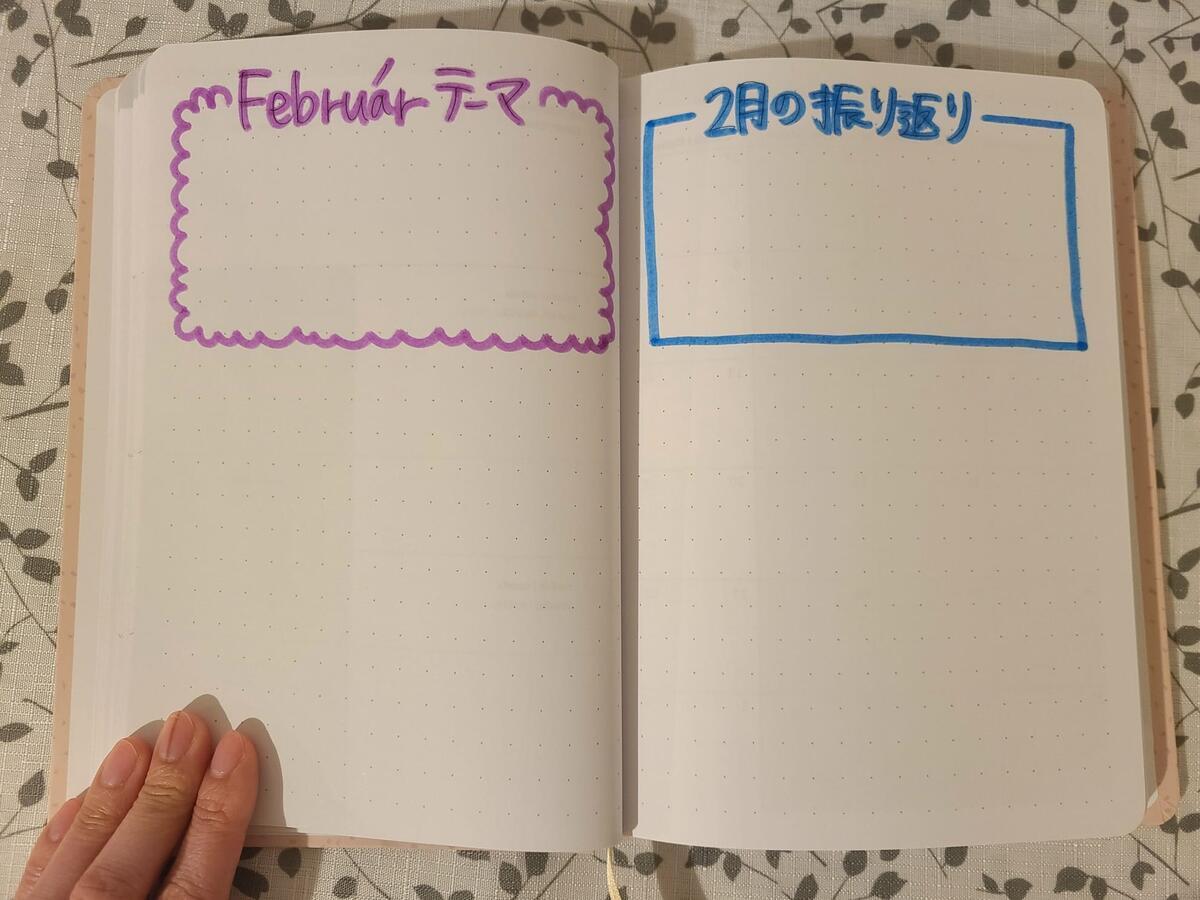 Február テーマ
2月の振り返り